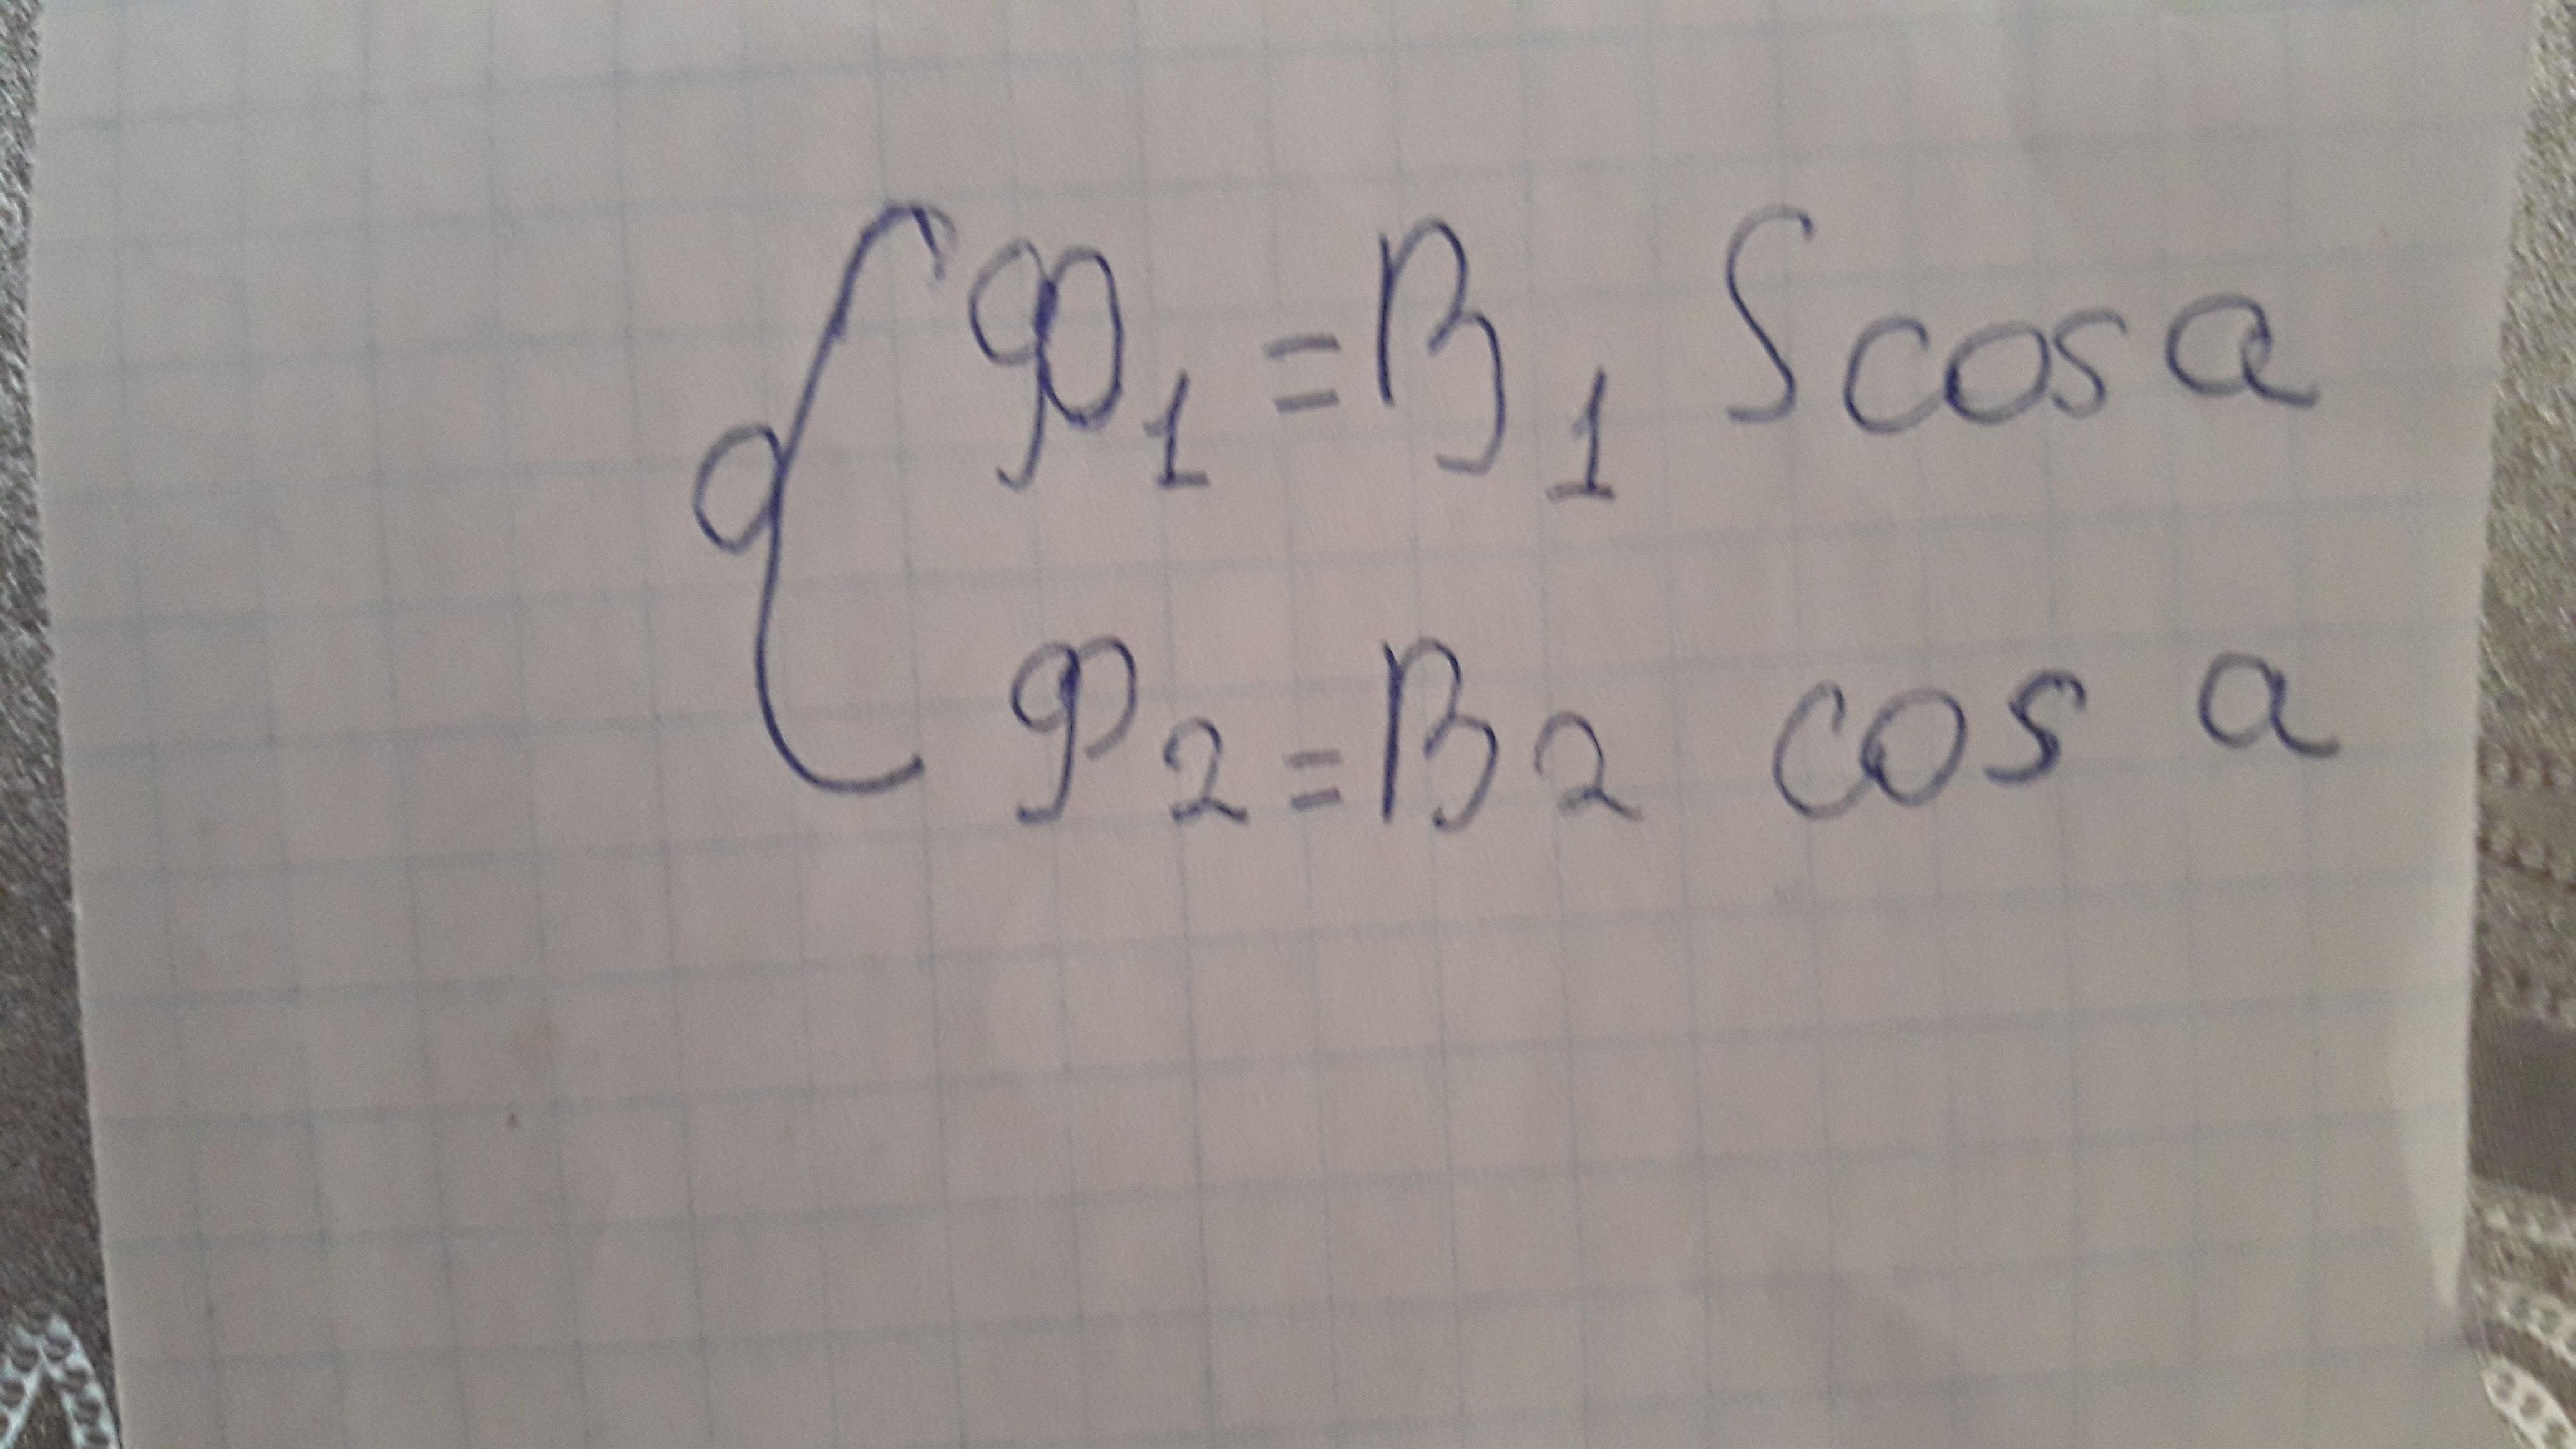 Ф₁ = B₁ S cos a
Ф₂ = B₂ cos a